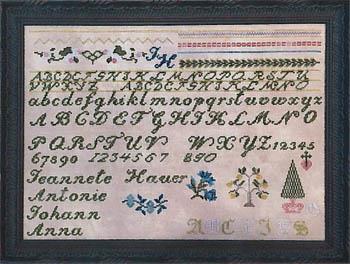 JH
ABCDEFGHIKLMNOPQRSTU
VWXYZ ABCDEFGHIKLMNO
abcdefghiklmnopqrstuvwxyz
ABCDEFGHIKLMNO
PQRSTUV WXYZ 12345
67890 1234567 890
Jeannete Hauer
Antonie
Johann
Anna